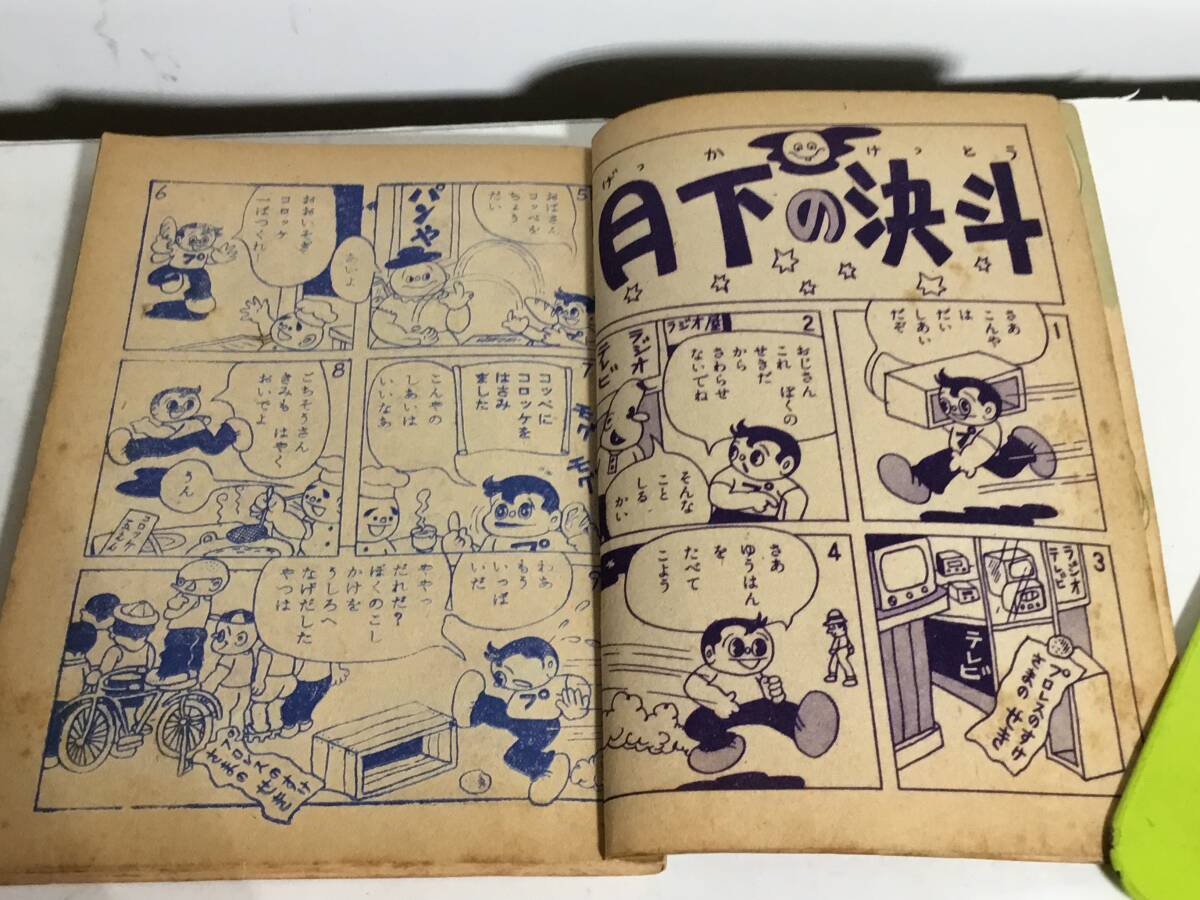 げっか けっとう
月下の決斗
1
さあ
こんや
は
だい
しあい
だぞ
2
ラジオ屋
ラジオ
テレビ
おじさん
これ ぼくの
せきだ
から
さわらせ
ないでね
そんな
こと
しる
かい
3
ラジオ
テレビ
テレビ
プロレスのすけ
さまの せき
4
さあ
ゆうはん
を
たべて
こよう
5
パンや
おばさん
コッペを
ちょう
だい
6
おおいそぎ
コロッケ
一ぱつくれ!
あいよ
プ
7
コッペに
コロッケを
はさみ
ました
こんやの
しあいは
いいなあ
モグ
モグ
プ
8
ごちそうさん
きみも はやく
おいでよ
うん
コロッケ
9
わあ
もう
いっぱ
いだ
ややっ
だれだ?
ぼくのこし
かけを
うしろへ
なげだした
やつは
プ
プロレスのすけ
さまの せき